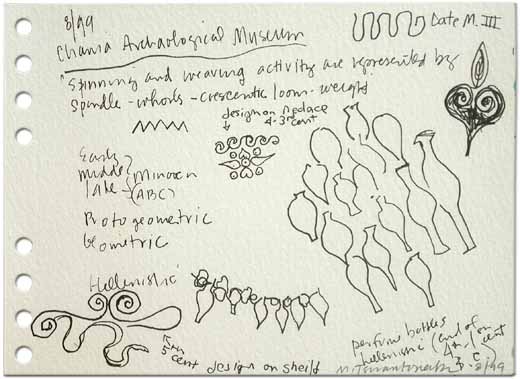 8/99
Chania Archaological Museum
Date M. III
"Spinning and weaving activity are represented by
spindle-whorls-crescentic loom-weight"
design on neclace
4-3rd cent
Early
middle
late
Minoan
(ABC)
Protogeometric
Geometric
Hellenistic
5 cent design on sheild
perfume bottles
hellenistic (end of
4th-1st cent
B.C.
8/99